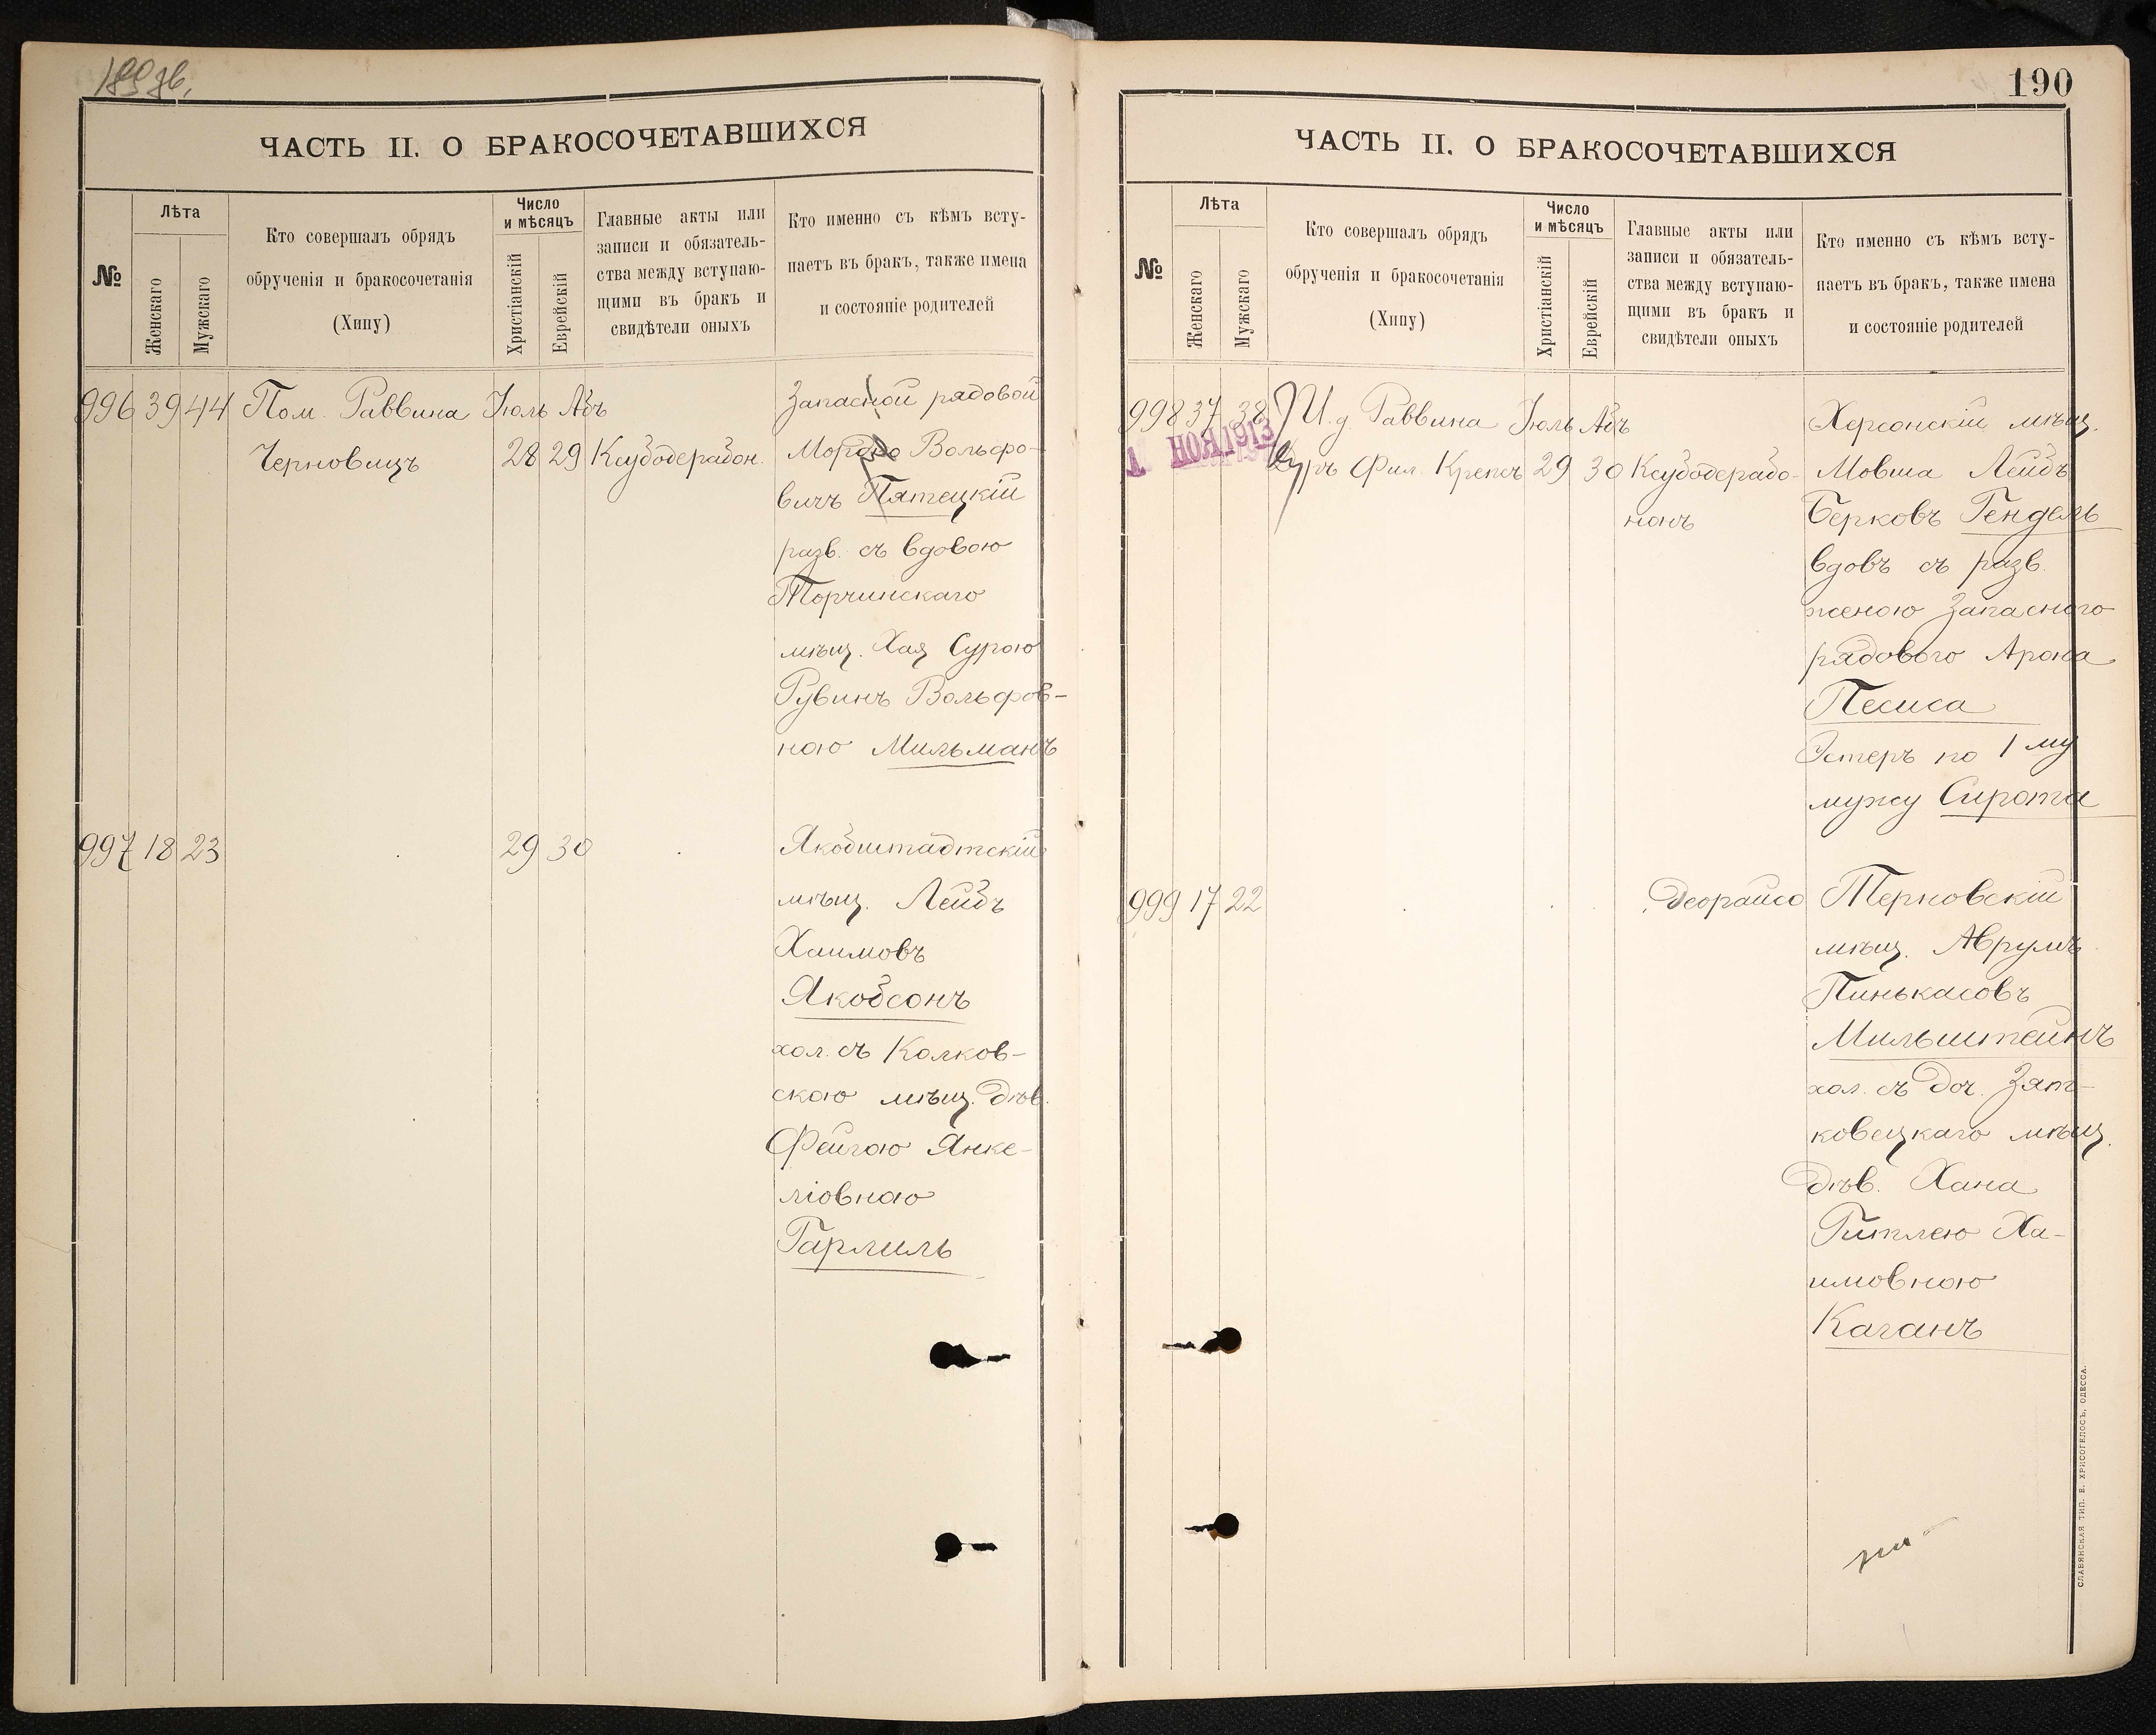 189 об.
ЧАСТЬ II. О БРАКОСОЧЕТАВШИХСЯ
№
Лѣта
Женскаго
Мужскаго
Кто совершалъ обрядъ
обрученія и бракосочетанія
(Хипу)
Число
и мѣсяцъ
Христіанскій
Еврейскій
Главные акты или
записи и обязатель-
ства между вступаю-
щими въ бракъ и
свидѣтели оныхъ
Кто именно съ кѣмъ всту-
паетъ въ бракъ, также имена
и состояніе родителей
996 39 44 Пом. Раввина Іюль Абъ Запасной рядовой
Черновицъ 28 29 Ксубодерабон. Мордко Вольфо-
вичъ Пятецкій
разв. съ вдовою
Торчинскаго
мѣщ. Хая Сурою
Рувинъ Вольфов-
ною Мильманъ
997 18 23 29 30 Якобштадтскій
мѣщ. Лейбъ
Хаимовъ
Якобсонъ
хол. съ Колков-
скою мѣщ. дѣв.
Фейгою Янке-
ліовною
Гарлиль
190
ЧАСТЬ II. О БРАКОСОЧЕТАВШИХСЯ
№
Лѣта
Женскаго
Мужскаго
Кто совершалъ обрядъ
обрученія и бракосочетанія
(Хипу)
Число
и мѣсяцъ
Христіанскій
Еврейскій
Главные акты или
записи и обязатель-
ства между вступаю-
щими въ бракъ и
свидѣтели оныхъ
Кто именно съ кѣмъ всту-
паетъ въ бракъ, также имена
и состояніе родителей
998 37 38 И.д. Раввина Іюль Абъ Херсонскій мѣщ.
1 НОЯ 1913
Фил. Крепсъ 29 30 Ксубодерабо- Мовша Лейбъ
нонъ Берковъ Гендель
вдовъ съ разв.
женою Запасного
рядового Арона
Песиса
Эстеръ по 1му
мужу Сирота
999 17 22 Деорайсо Терновскій
мѣщ. Аврумъ
Пинькасовъ
Мильштейнъ
хол. съ доч. Зят-
ковецкаго мѣщ.
дѣв. Хана
Гитлею Ха-
имовною
Каганъ
СЛАВЯНСКАЯ ТИП. Е. ХРИСОГЕЛОСЪ, ОДЕССА.